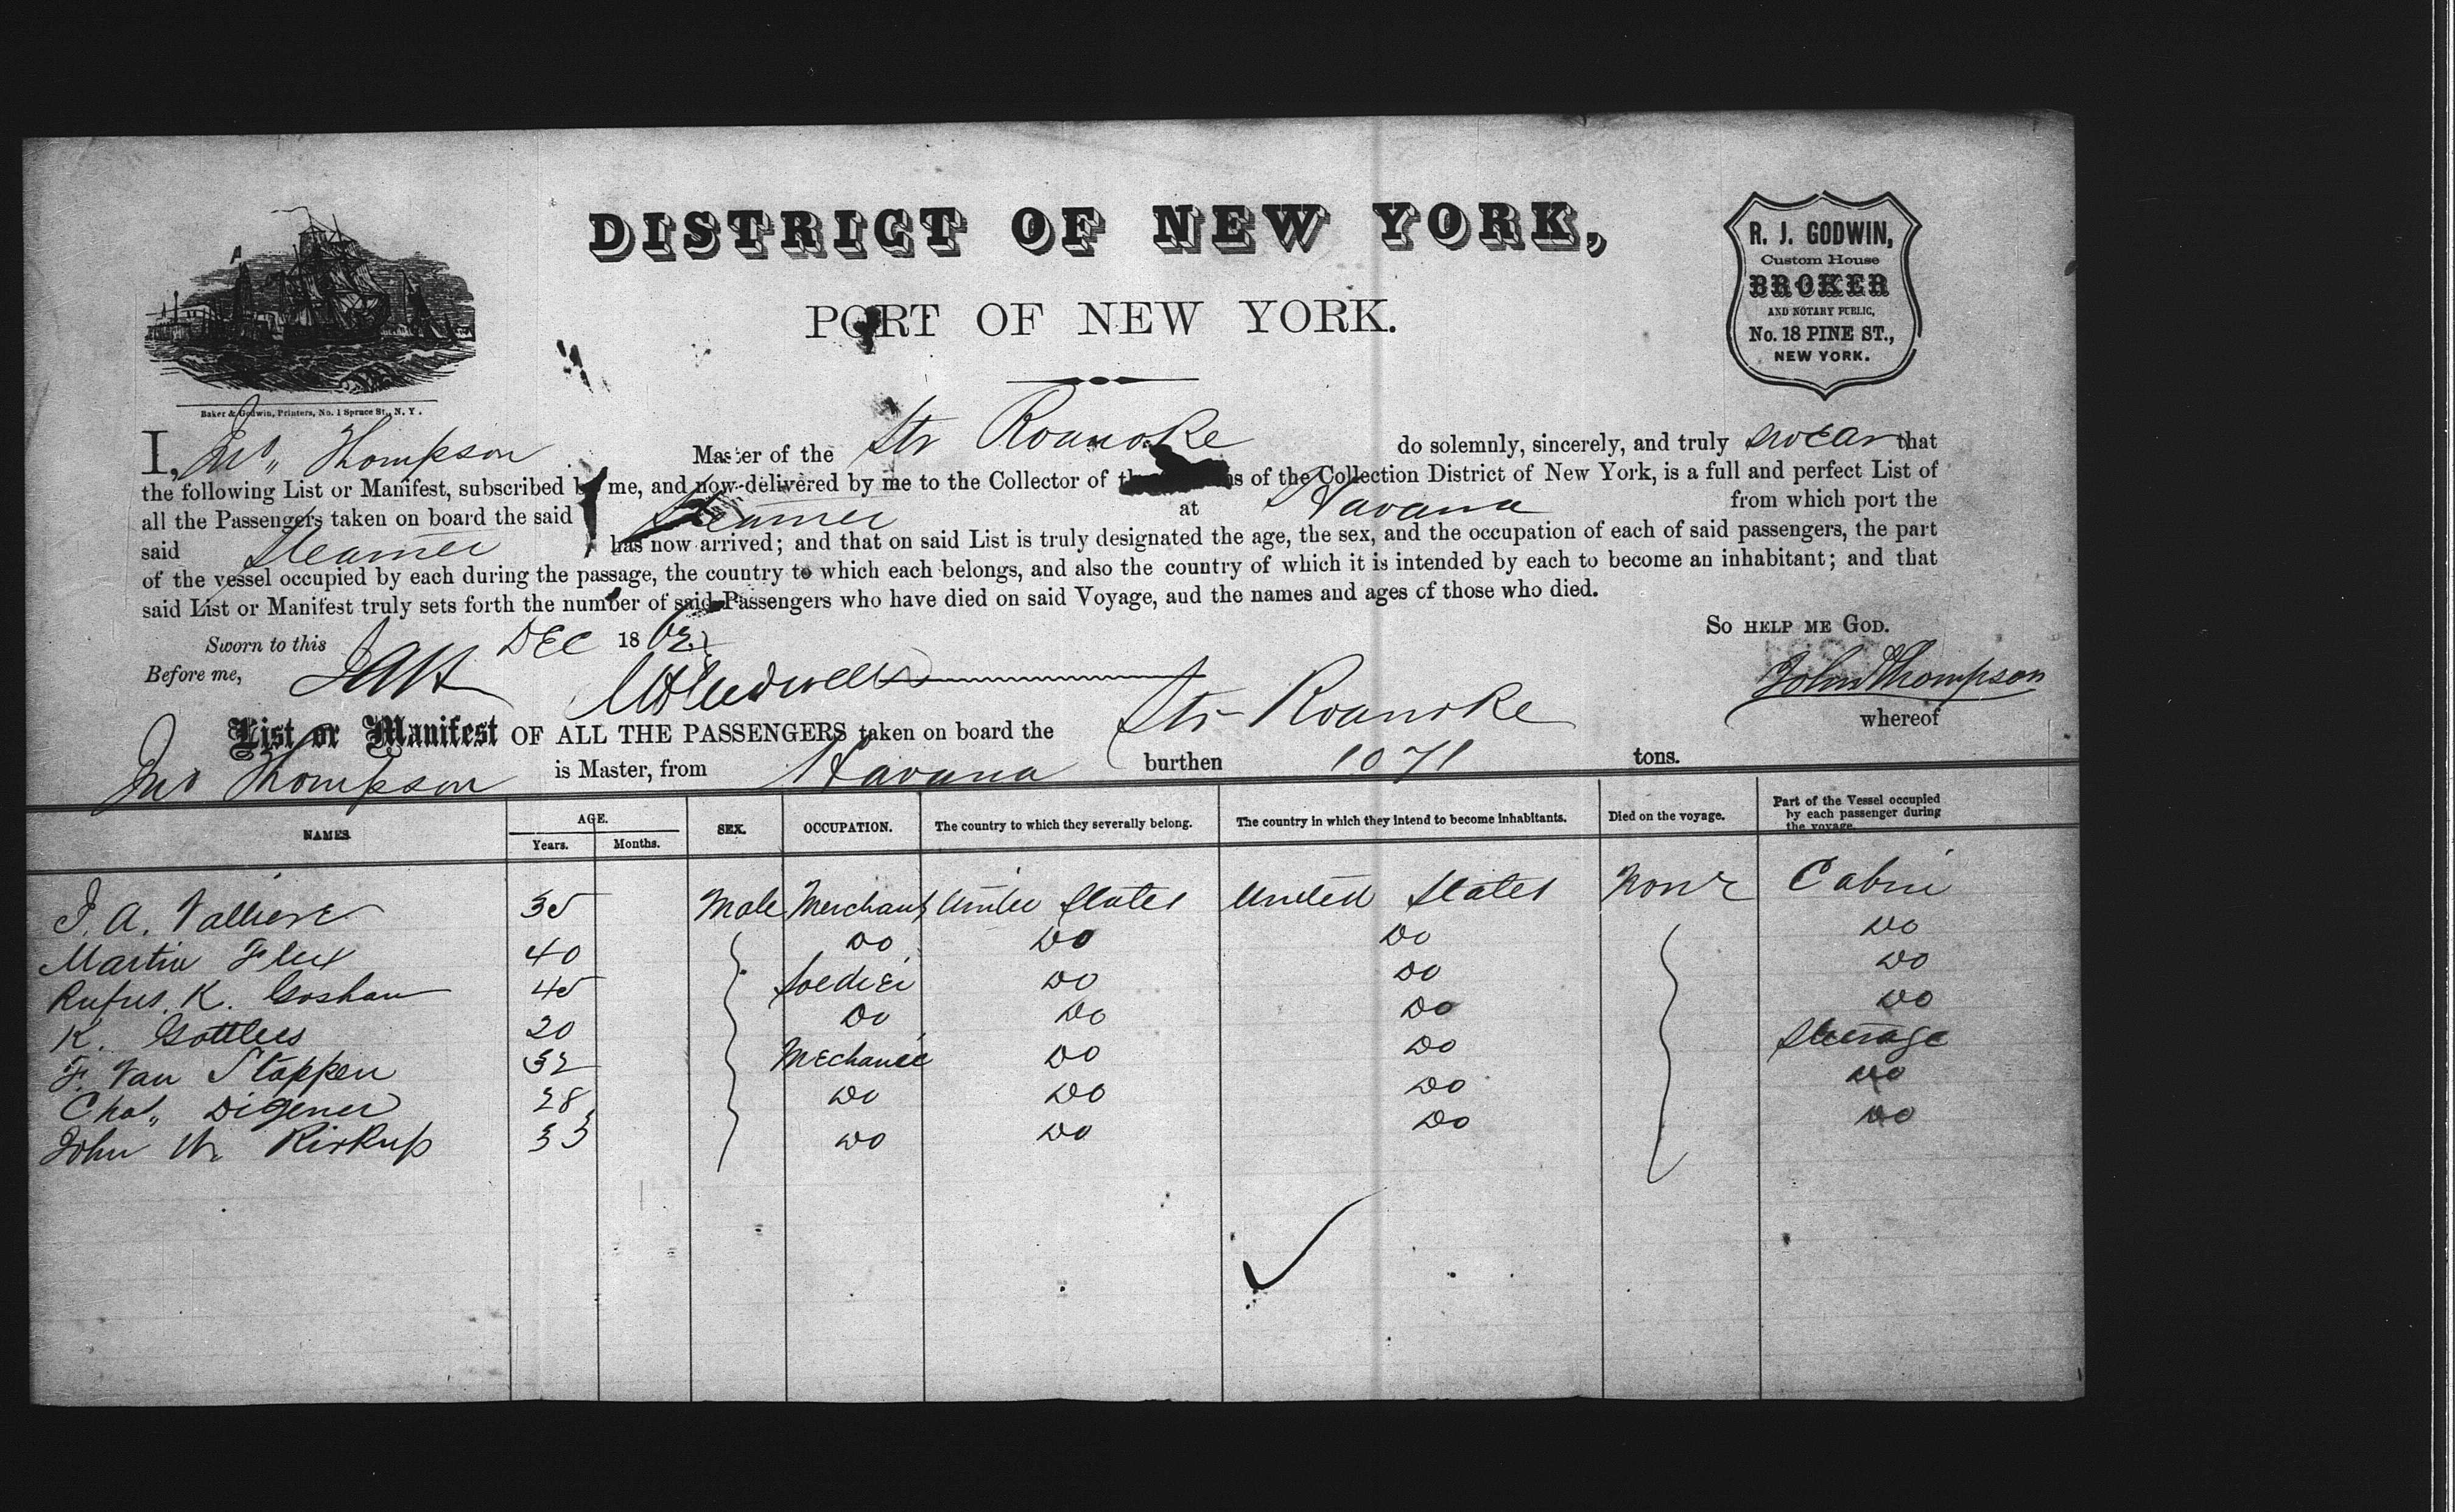 DISTRICT OF NEW YORK,
PORT OF NEW YORK.
R. J. GODWIN,
Custom House
BROKER
AND NOTARY PUBLIC,
No. 18 PINE ST.,
NEW YORK.
Baker & Godwin, Printers, No. 1 Spruce St., N. Y.
I, Jno,, Thompson Master of the Str Roanoke do solemnly, sincerely, and truly swear that
the following List or Manifest, subscribed by me, and now delivered by me to the Collector of of the Collection District of New York, is a full and perfect List of
all the Passengers taken on board the said Steamer at Havana from which port the
said Steamer has now arrived; and that on said List is truly designated the age, the sex, and the occupation of each of said passengers, the part
of the vessel occupied by each during the passage, the country to which each belongs, and also the country of which it is intended by each to become an inhabitant; and that
said List or Manifest truly sets forth the number of said Passengers who have died on said Voyage, and the names and ages of those who died.
Sworn to this Dec 186 So HELP ME GOD.
Before me, John Thompson
List or Manifest OF ALL THE PASSENGERS taken on board the Str Roanoke whereof
Jno Thompson is Master, from Havana burthen 1071 tons.
NAMES. AGE. Years. Months. SEX. OCCUPATION. The country to which they severally belong. The country in which they intend to become inhabitants. Died on the voyage. Part of the Vessel occupied by each passenger during the voyage.
A. Valliere 35 Male Merchant United States United States None Cabin
Martin Flux 40 Do Do Do Do
Rufus K. Goshau 45 Soldier Do Do Do
K. Gottlees 20 Do Do Do Do
F. Van Stappen 32 Mechanic Do Do Steerage
Cha,, Digener 28 Do Do Do Do
John W. Kirkup 33 Do Do Do Do